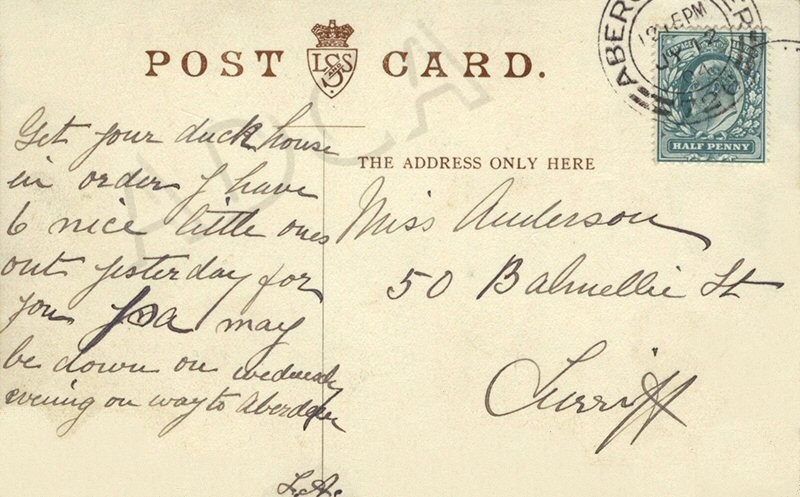 POST CARD.
L&S AND S
ADCA
12.15PM
JY 12
HALF PENNY
THE ADDRESS ONLY HERE
Get your duck house
in order I have
6 nice little ones
out yesterday for
you
may
be down on wednesday
evening on way to Aberdeen
Miss Anderson
50 Balmellie St
Turriff